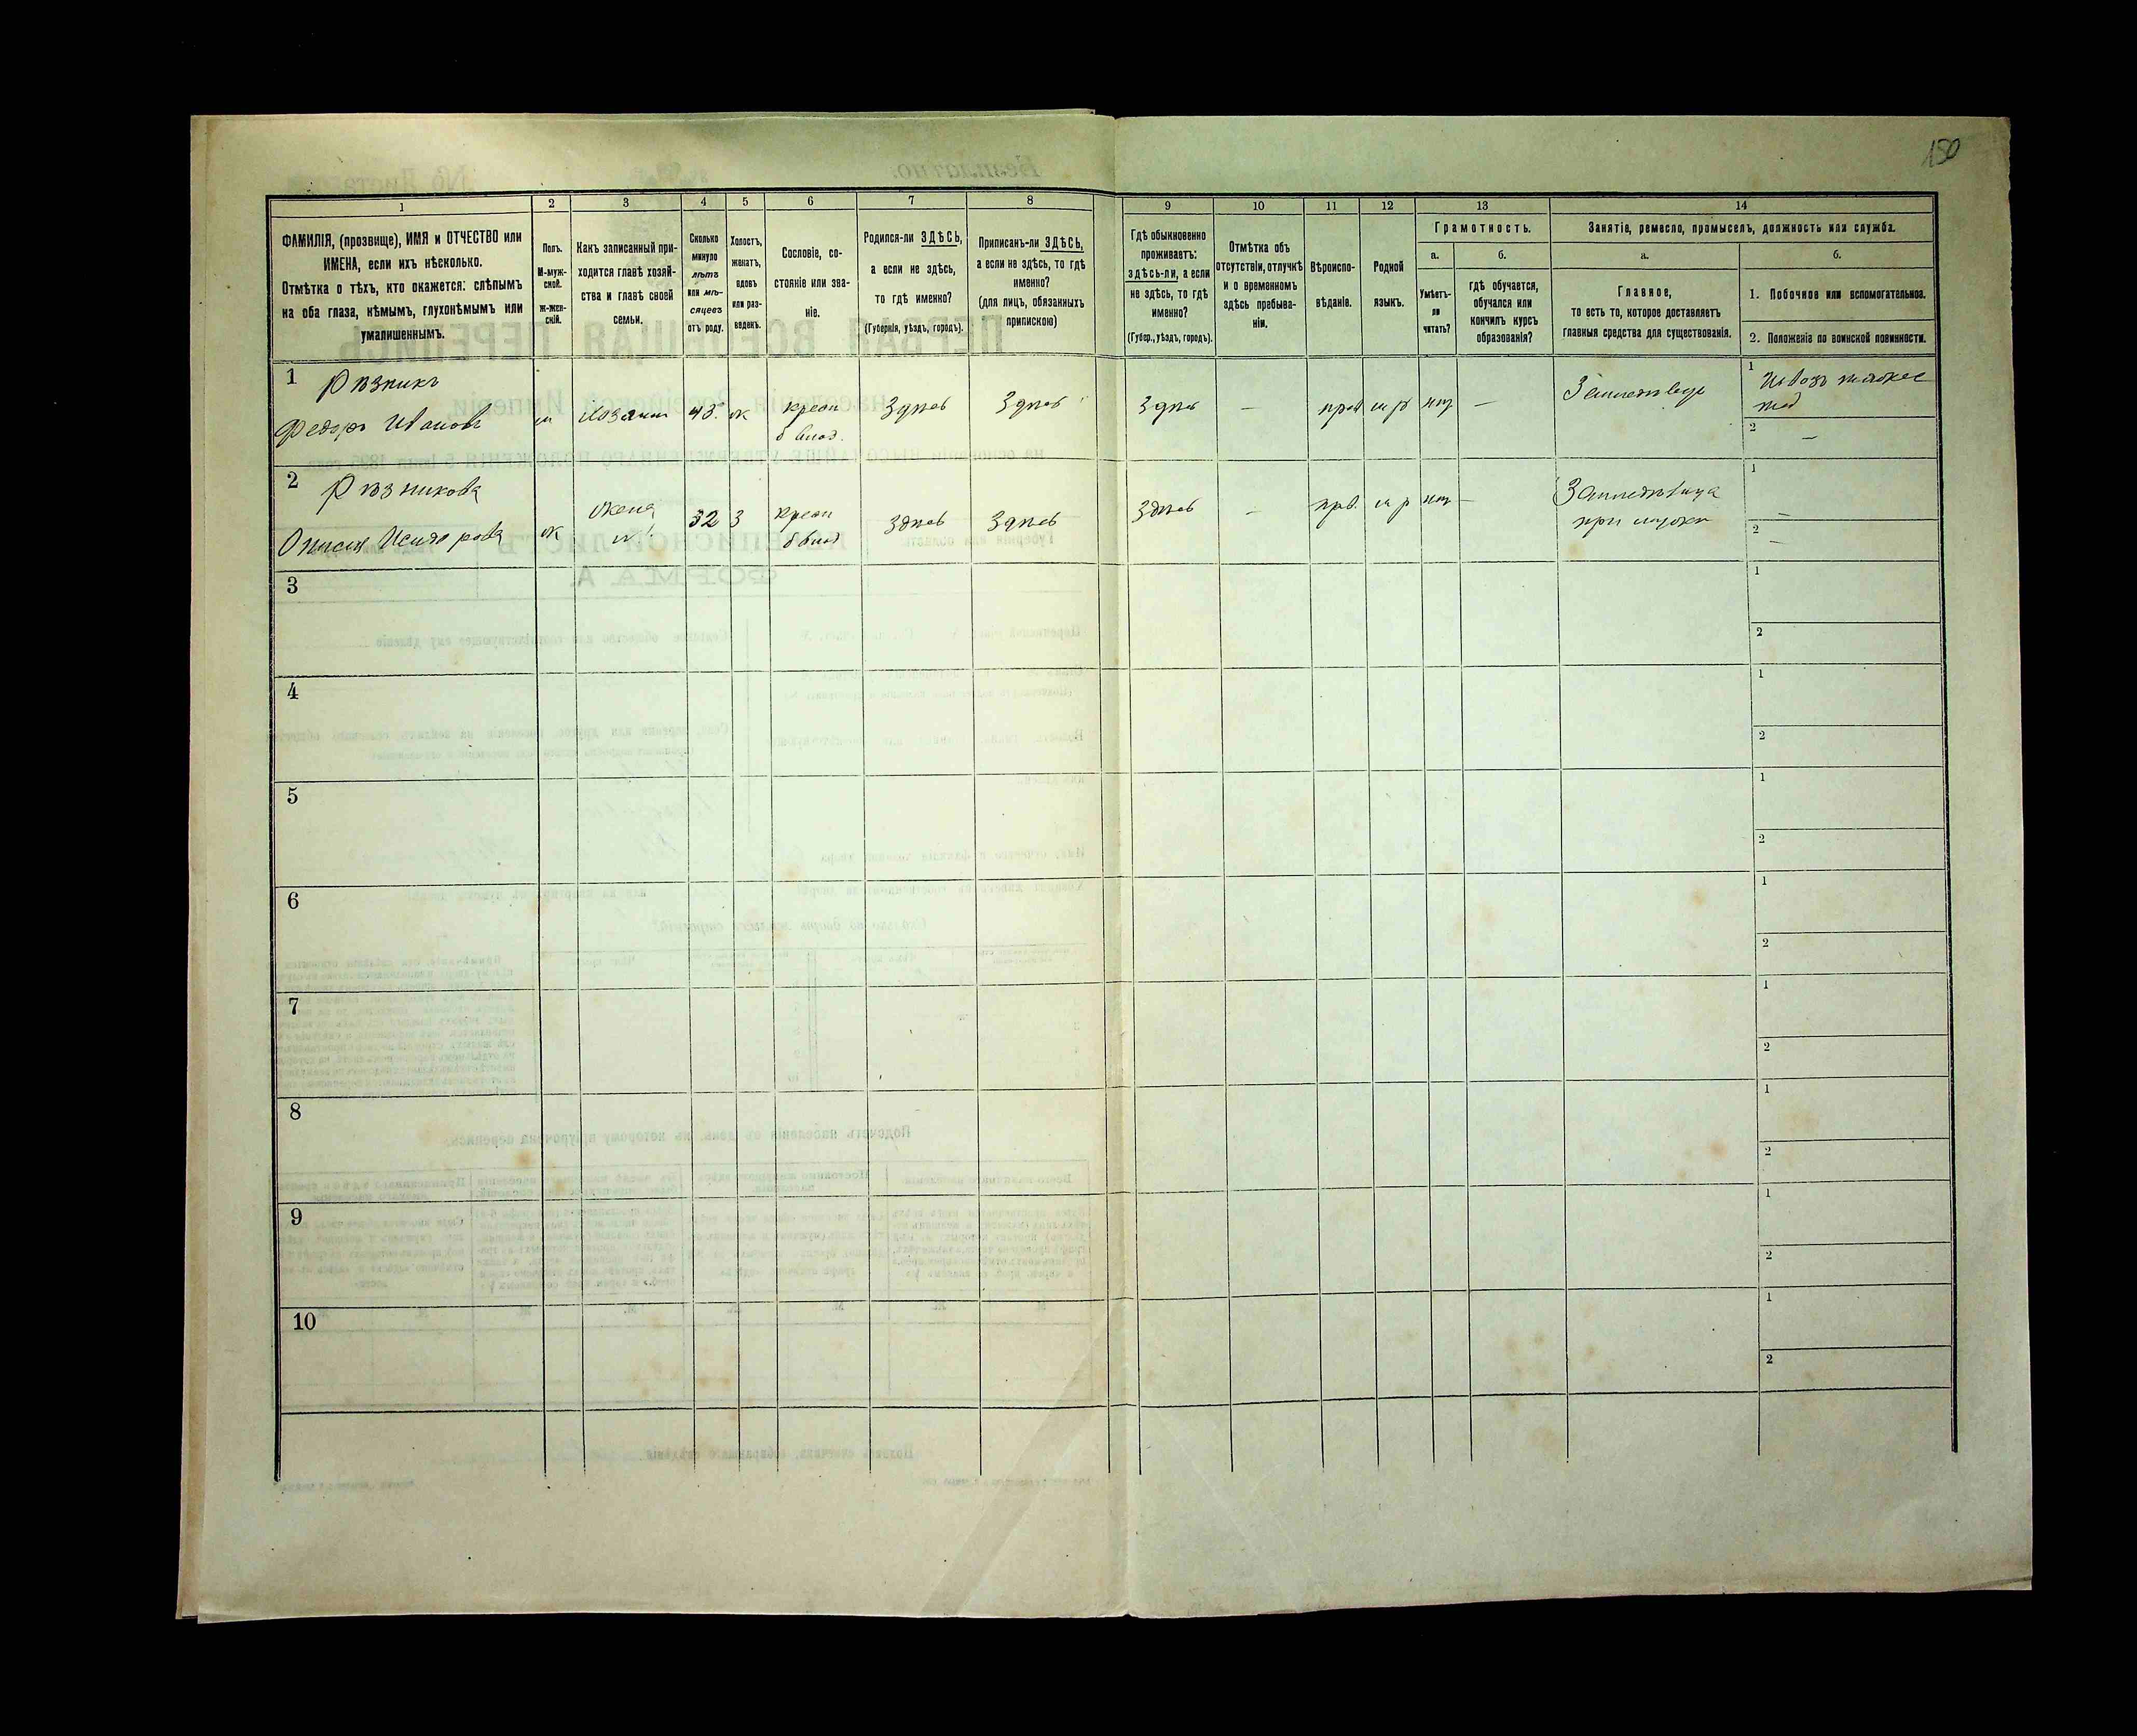 150
1
2
3
4
5
6
7
8
9
10
11
12
13
14
ФАМИЛІЯ, (прозвище), ИМЯ и ОТЧЕСТВО или
ИМЕНА, если ихъ нѣсколько.
Отмѣтка о тѣхъ, кто окажется: слѣпымъ
на оба глаза, нѣмымъ, глухонѣмымъ или
умалишеннымъ.
Полъ.
М-муж-
ской.
ж-жен-
скій.
Какъ записанный при-
ходится главѣ хозяй-
ства и главѣ своей
семьи.
Сколько
минуло
лѣтъ
или мѣ-
сяцевъ
отъ роду.
Холостъ,
женатъ,
вдовъ
или раз-
веденъ.
Сословіе, со-
стояніе или зва-
ніе.
Родился-ли ЗДѢСЬ,
а если не здѣсь,
то гдѣ именно?
(Губернія, уѣздъ, городъ).
Приписанъ-ли ЗДѢСЬ,
а если не здѣсь, то гдѣ
именно?
(для лицъ, обязанныхъ
припискою)
Гдѣ обыкновенно
проживаетъ:
здѣсь-ли, а если
не здѣсь, то гдѣ
именно?
(Губер., уѣздъ, городъ).
Отмѣтка объ
отсутствіи, отлучкѣ
и о временномъ
здѣсь пребыва-
ніи.
Вѣроиспо-
вѣданіе.
Родной
языкъ.
Грамотность.
а.
Умѣетъ-
ли
читать?
б.
гдѣ обучается,
обучался или
кончилъ курсъ
образованія?
Занятіе, ремесло, промыселъ, должность или служба.
а.
Главное,
то есть то, которое доставляетъ
главныя средства для существованія.
б.
1. Побочное или вспомогательное.
2. Положеніе по воинской повинности.
1 Рѣзникъ
Федоръ Ивановъ
м
Хозяинъ
ж
крест
б влад.
Здѣсь
Здѣсь
Здѣсь
—
прав
м р
нѣт
—
1
2 —
2 Рѣзникова
Исидорова
ж
Жена
32
З
крест
б влад
Здѣсь
Здѣсь
Здѣсь
—
прв.
м р
нѣт
—
при мужѣ
1 —
2 —
3
1
2
4
1
2
5
1
2
6
1
2
7
1
2
8
1
2
9
1
2
10
1
2